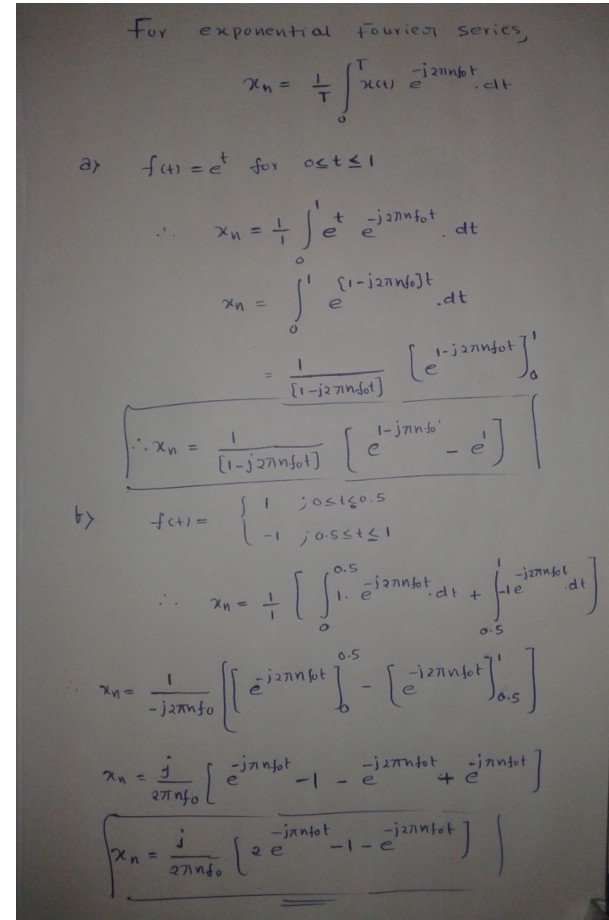 For exponential Fourier series,
xₙ = 1/T ∫₀ᵀ x(t) e^(-j2πnf₀t) .dt
a) f(t) = e^t for 0≤t≤1
∴ xₙ = 1/1 ∫₀¹ e^t e^(-j2πnf₀t) . dt
xₙ = ∫₀¹ e^([1-j2πnf₀]t) .dt
= 1/[1-j2πnf₀t] [e^(1-j2πnf₀t)]₀¹
∴ xₙ = 1/[1-j2πnf₀t] [e^(1-jπnf₀) - e¹]
b) f(t) = { 1 ; 0≤t≤0.5
-1 ; 0.5≤t≤1
∴ xₙ = 1/1 [ ∫₀^0.5 1. e^(-j2πnf₀t) .dt + ∫_0.5^1 -1e^(-j2πnf₀t) .dt ]
∴ xₙ = 1/(-j2πnf₀) [ [e^(-j2πnf₀t)]₀^0.5 - [e^(-j2πnf₀t)]_0.5^1 ]
xₙ = j/(2πnf₀) [ e^(-jπnf₀t) -1 - e^(-j2πnf₀t) + e^(-jπnf₀t) ]
xₙ = j/(2πnf₀) [ 2 e^(-jπnf₀t) -1 - e^(-j2πnf₀t) ]